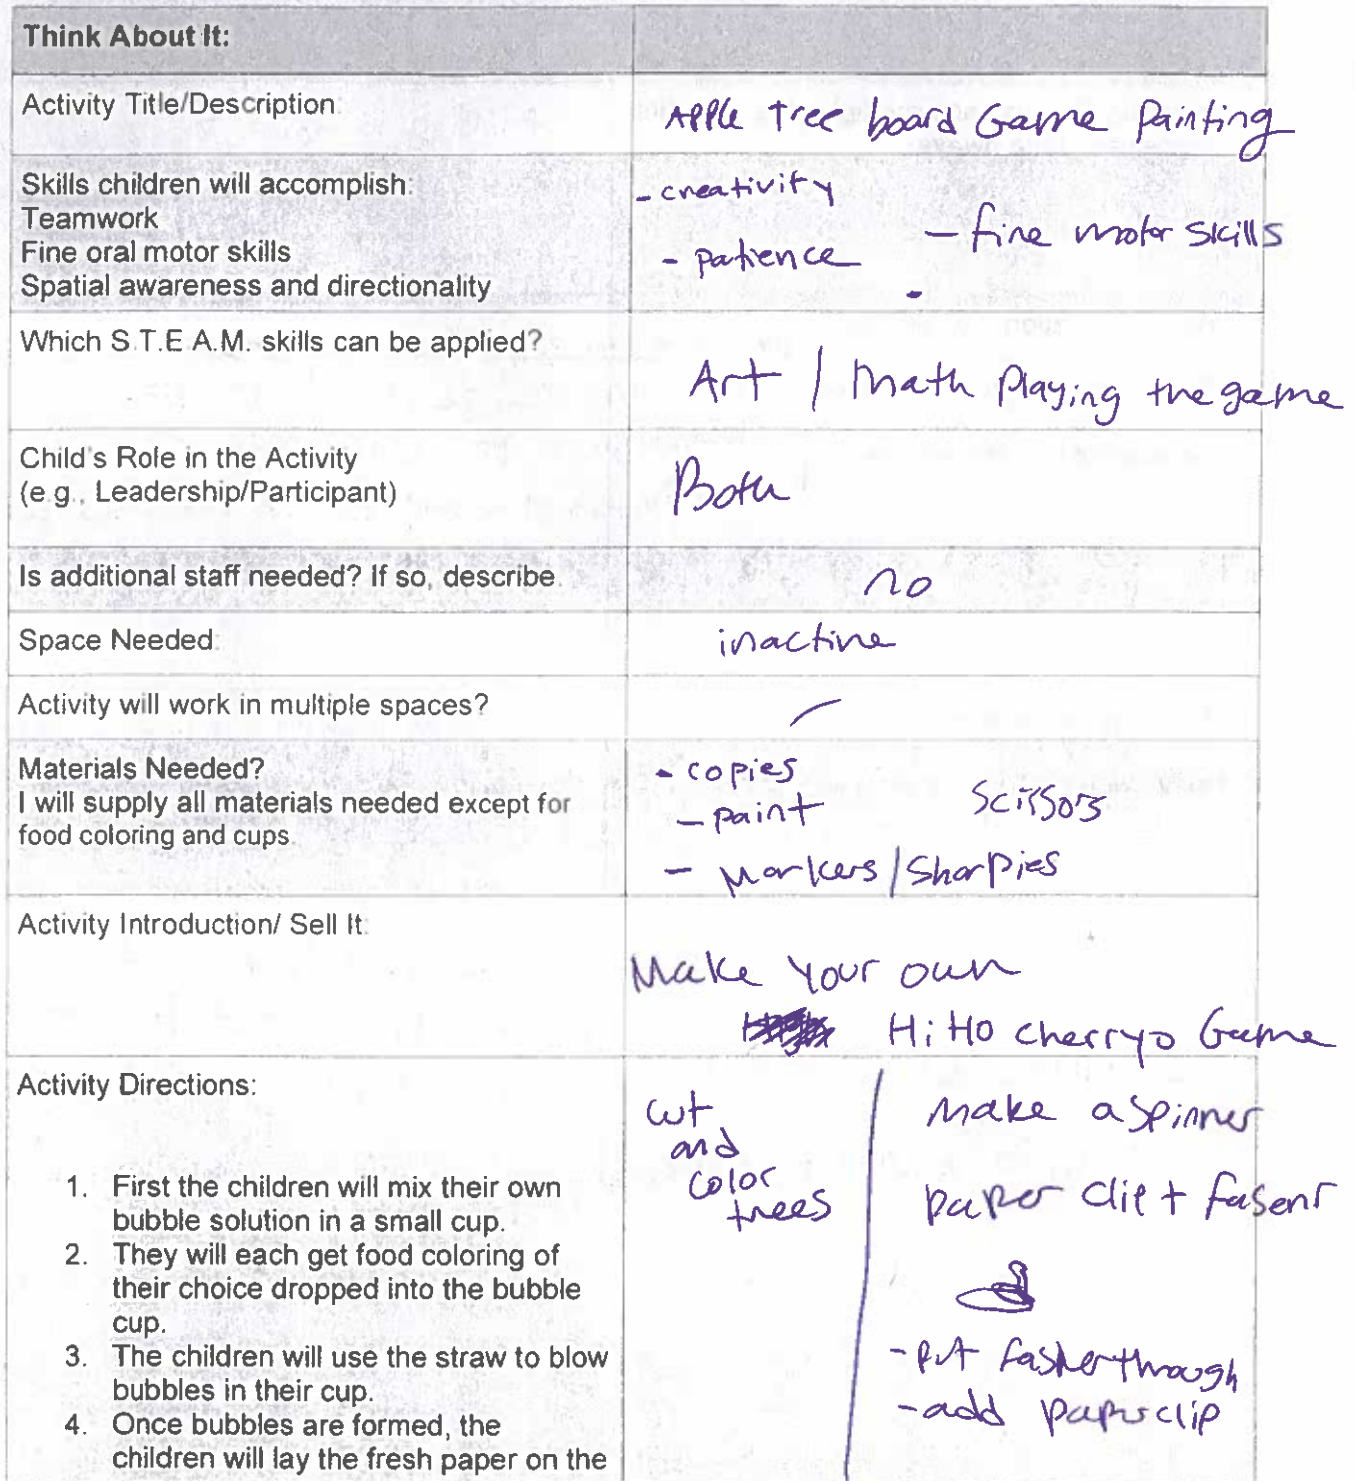 Think About It:
Activity Title/Description:
Apple tree board Game Painting
Skills children will accomplish:
Teamwork
Fine oral motor skills
Spatial awareness and directionality
- creativity
- patience
- fine motor skills
-
Which S.T.E.A.M. skills can be applied?
Art / Math Playing the game
Child's Role in the Activity
(e.g., Leadership/Participant)
Both
Is additional staff needed? If so, describe.
no
Space Needed:
inactive
Activity will work in multiple spaces?
Materials Needed?
I will supply all materials needed except for
food coloring and cups.
- copies
- paint
scissors
- Markers/Sharpies
Activity Introduction/ Sell It:
Make your own
Hi HO cherryo Game
Activity Directions:
1. First the children will mix their own
bubble solution in a small cup.
2. They will each get food coloring of
their choice dropped into the bubble
cup.
3. The children will use the straw to blow
bubbles in their cup.
4. Once bubbles are formed, the
children will lay the fresh paper on the
cut
and
color
trees
make a spinner
paper clip + fasenr
- put fastner through
- add paperclip